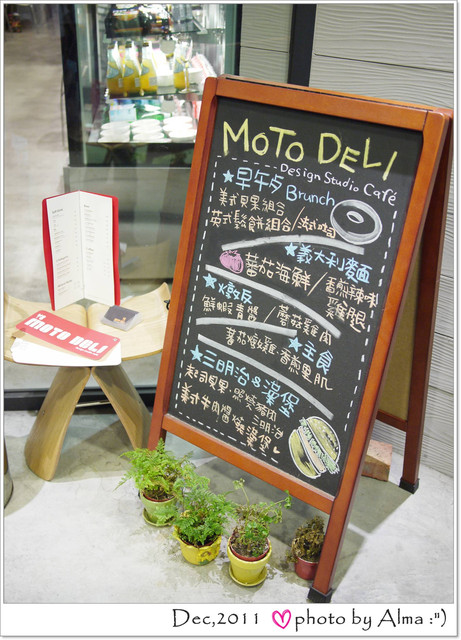 MOTO DELI
Design Studio Café
★早午歺 Brunch
美式貝果組合
英式鬆餅組合/
★義大利麵
蕃茄海鮮/香煎辣味
雞腿
★燉飯
鮮蝦青醬/蘑菇雞肉
★主食
蕃茄燉飯.香煎里肌
★三明治&漢堡
起司貝果.照燒豬肉
三明治
美式牛肉醬 漢堡
MOTO DELI
Dec,2011 photo by Alma :")